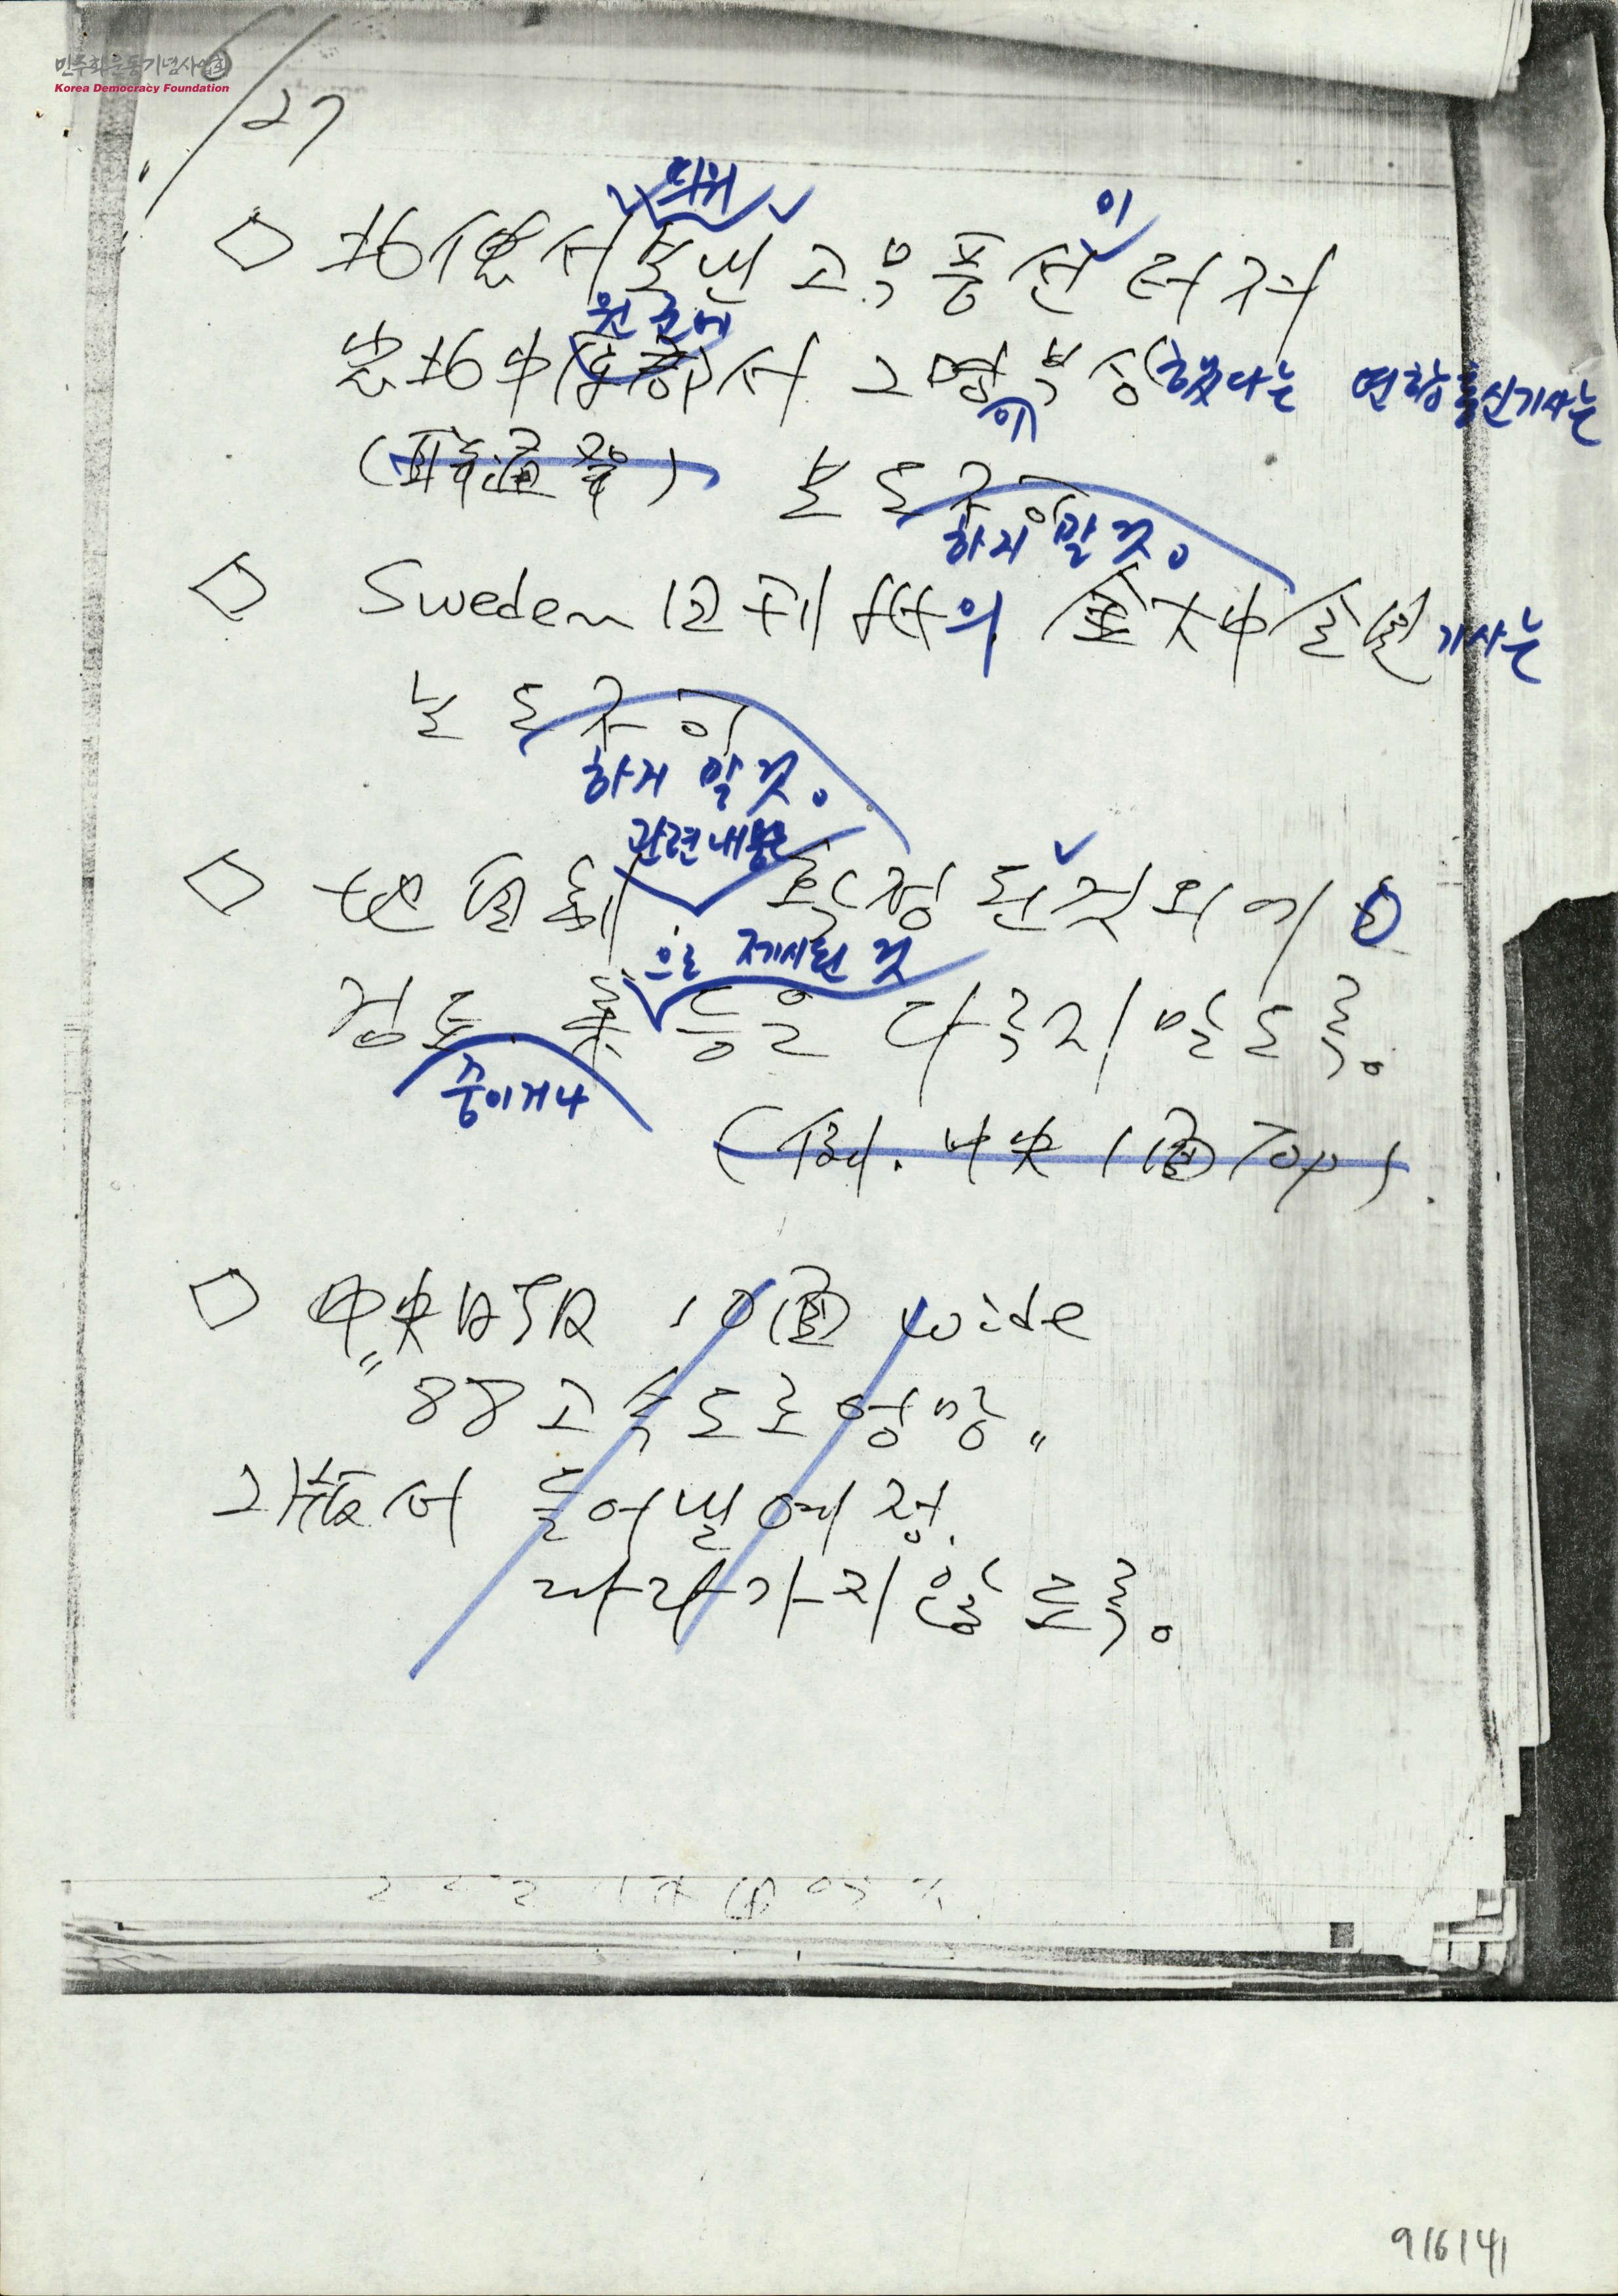 민주화운동기념사업회
Korea Democracy Foundation
/27
띄워
이
◇ 北傀서 보낸 고무풍선 터져
원군에
忠北中 서 2명 부상했다는 연합통신기사는
이
(聯合通發) 보도
하지 말것。
◇ Sweden 日刊紙의 金大中 회견 기사는
보도
하지 말것。
관련내용은
◇ 地自制 확정된 것 외에는
으로 제시된 것
검토. 案 등은 다루지 말도록。
중이거나
(例. 中央 1面 Top).
◇ 中央日報 10面 wide
"88고속도로 엉망"
2版서 들어낼 예정.
따라가지 않도록。
916141